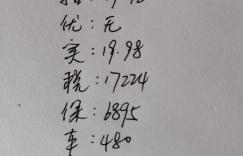 优：无
实：19.98
税：17224
保：6895
车：480